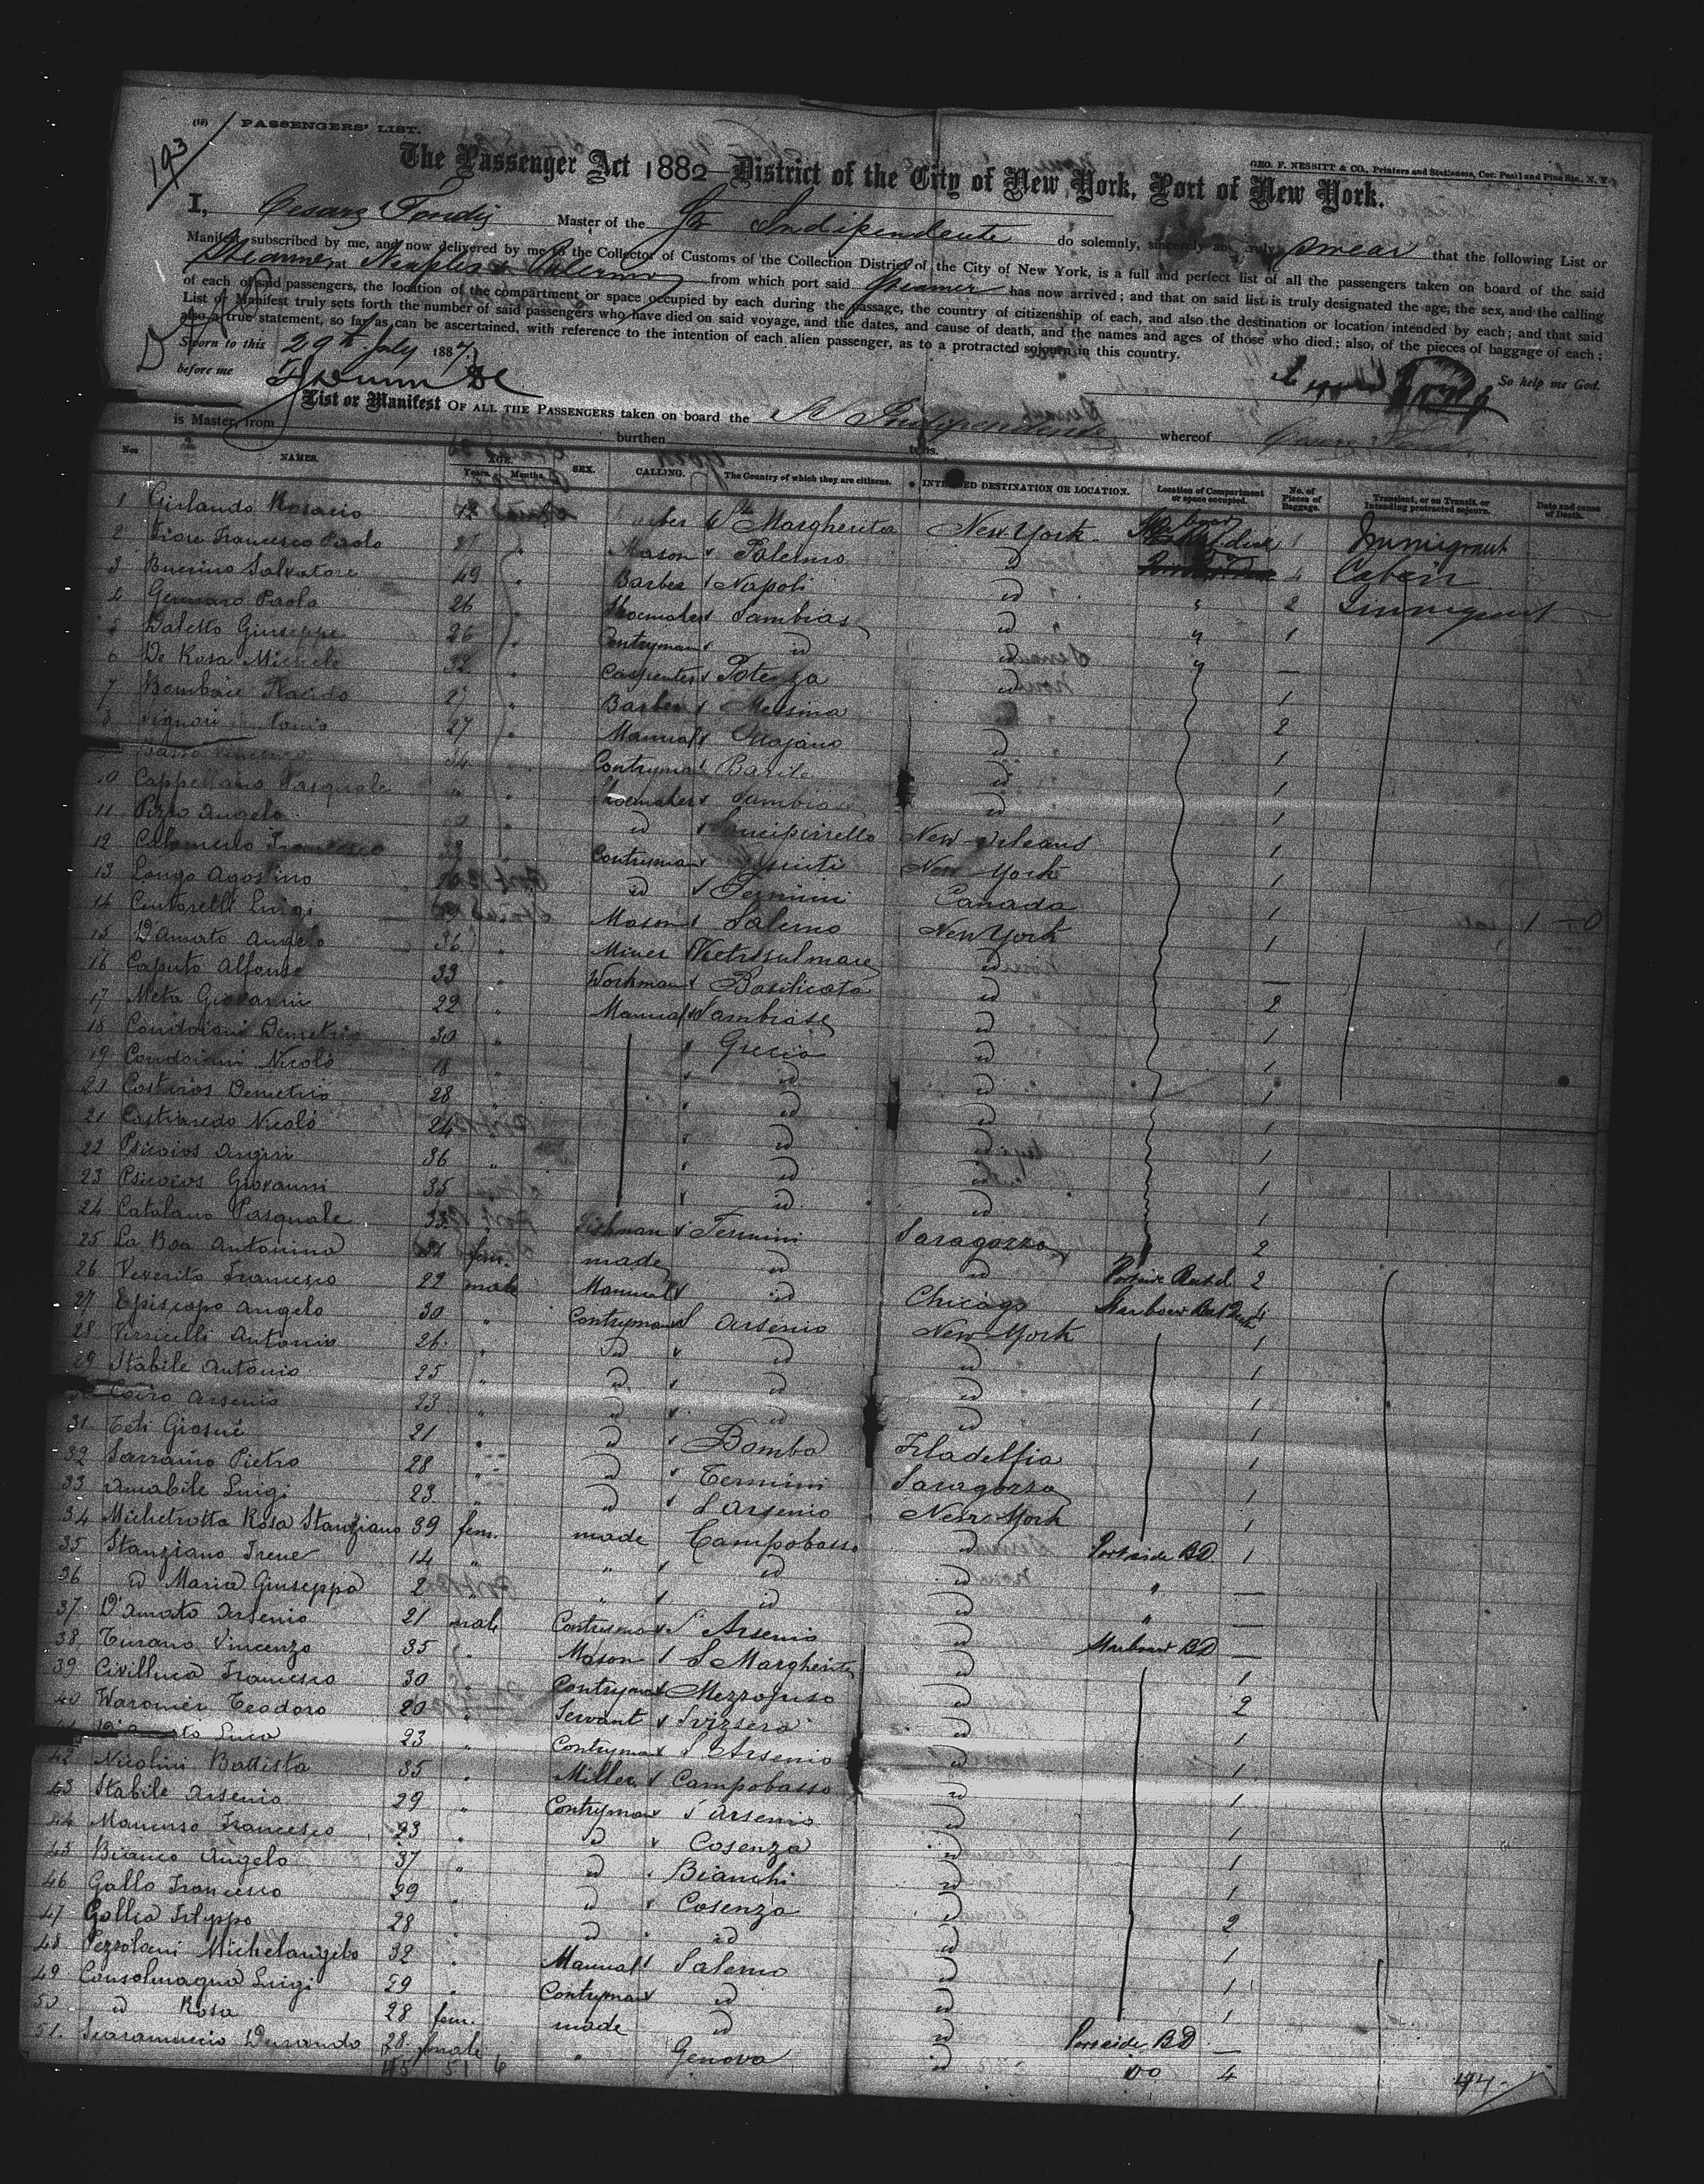 193
(18) PASSENGERS' LIST.
GEO. F. NESBITT & CO., Printers and Stationers, Cor. Pearl and Pine Sts., N. Y.
The Passenger Act 1882—District of the City of New York, Port of New York.
I, Master of the Str Indipendente do solemnly, sincerely and truly swear that the following List or
Manifest, subscribed by me, and now delivered by me to the Collector of Customs of the Collection District of the City of New York, is a full and perfect list of all the passengers taken on board of the said
Steamer at Naples & Palermo from which port said Steamer has now arrived; and that on said list is truly designated the age, the sex, and the calling
of each of said passengers, the location of the compartment or space occupied by each during the passage, the country of citizenship of each, and also the destination or location intended by each; and that said
List or Manifest truly sets forth the number of said passengers who have died on said voyage, and the dates, and cause of death, and the names and ages of those who died; also, of the pieces of baggage of each;
also a true statement, so far as can be ascertained, with reference to the intention of each alien passenger, as to a protracted sojourn in this country.
Sworn to this 29th July 1887. So help me God.
before me
List or Manifest OF ALL THE PASSENGERS taken on board the Sr Indipendente whereof
is Master, from burthen tons.
Nos NAMES. AGE. Years. Months. SEX. CALLING. The Country of which they are citizens. INTENDED DESTINATION OR LOCATION. Location of Compartment or space occupied. No. of Pieces of Baggage. Transient, or on Transit, or Intending protracted sojourn. Date and cause of Death.
1 Girlando Rosario 12 Barber Sta Margherita New York 1 Immigrant
2 Fiore Francesco Paolo 27 " Mason Palermo id 4 Cabin
3 Buccino Salvatore 49 " Barber Napoli id " 2 Immigrant
4 Gennaro Paolo 26 " Shoemaker Sambiase id " 1
5 Daletto Giuseppe 26 " Contryman id id " —
6 De Rosa Michele 32 " Carpenter Potenza id 1
7 Bombaie Placido 27 " Barber Messina 2
8 27 " Manual Ottajano id 1
34 Contryman Barile id 1
10 Cappellano Pasquale " Shoemaker Sambiase id 1
11 Pizzo Angelo id New Orleans 1
12 Francesco 39 Contryman New York 1
13 Longo Agostino id Termini Canada 1
14 Centorelli Luigi Mason Salerno New York 1
15 D'Amato Angelo 36 " Miner Vietri sul mare id —
16 Caputo Alfonso 33 " Workman Basilicata id 2
17 Meta Giovanni 22 " Manual Sambiase id 1
18 Condoiani Demetrio 30 " Grecia id 1
19 Condoiani Nicolò 18 " id id 1
20 Costurios Demetrio 28 id id 1
21 Nicolò 24 id id 1
22 Psicoios 36 " id id 1
23 Psicoios Giovanni 35 " id id 1
24 Catalano Pasquale 33 Fishman Termini Saragozza 2
25 La Boa Antonina 31 fem. made id id Portside 2
26 Veverito Francesco 22 male Manual id Chicago 4
27 Episcopo Angelo 30 " Contryman S Arsenio New York 1
28 Verricelli Antonio 26 " id id id 1
29 Stabile Antonio 25 " id id id 1
Coiro Arsenio 23 " id id id 1
31 Teti Giosuè 21 " id Bomba Filadelfia 1
32 Sarraino Pietro 28 " id Termini Saragozza 1
33 Amabile Luigi 23 " id S Arsenio New York 1
34 Michetrotta Rosa Stanziano 39 fem. made Campobasso id Portside BD 1
35 Stanziano Irene 14 " " id id " —
36 id Maria Giuseppa 2 " " id id " —
37 D'Amato Arsenio 21 male Contryman S Arsenio id Starboar BD —
38 Turano Vincenzo 35 " Mason S Margherita id 1
39 Civilluca Francesco 30 Contryman Mezzojuso id 2
40 Waronier Teodoro 20 " Servant Svizzera id 1
41 D'Amato Luca 23 " Contryman S Arsenio id 1
42 Nicolini Battista 35 " Miller Campobasso id 1
43 Stabile Arsenio 29 " Contryman S Arsenio id 1
44 Mancuso Francesco 23 " id Cosenza id 1
45 Bianco Angelo 37 " id Bianchi id 1
46 Gallo Francesco 29 " id Cosenza id 2
47 Gallia Filippo 28 " id id id 1
48 Pezzolani Michelangelo 32 " Manual Salerno id 1
49 Consolmagno Luigi 29 " Contryman id id 1
50 id Rosa 28 fem. made id id Portside BD —
51. Scaramuccio Durando 28 female " Genova id 4
45 51 6
194